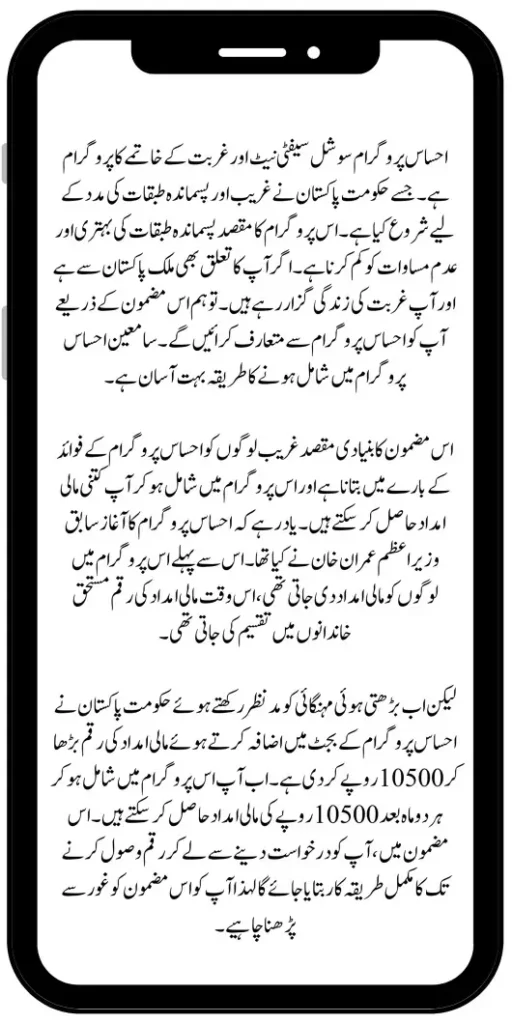 احساس پروگرام سوشل سیفٹی نیٹ اور غربت کے خاتمے کا پروگرام
ہے۔ جسے حکومت پاکستان نے غریب اور پسماندہ طبقات کی مدد کے
لیے شروع کیا ہے۔ اس پروگرام کا مقصد پسماندہ طبقات کی بہتری اور
عدم مساوات کو کم کرنا ہے۔ اگر آپ کا تعلق بھی ملک پاکستان سے ہے
اور آپ غربت کی زندگی گزار رہے ہیں۔ تو ہم اس مضمون کے ذریعے
آپ کو احساس پروگرام سے متعارف کرائیں گے۔ سامعین احساس
پروگرام میں شامل ہونے کا طریقہ بہت آسان ہے۔
اس مضمون کا بنیادی مقصد غریب لوگوں کو احساس پروگرام کے فوائد
کے بارے میں بتانا ہے اور اس پروگرام میں شامل ہو کر آپ کتنی مالی
امداد حاصل کر سکتے ہیں۔ یاد رہے کہ احساس پروگرام کا آغاز سابق
وزیراعظم عمران خان نے کیا تھا۔ اس سے پہلے اس پروگرام میں
لوگوں کو مالی امداد دی جاتی تھی، اس وقت مالی امداد کی رقم مستحق
خاندانوں میں تقسیم کی جاتی تھی۔
لیکن اب بڑھتی ہوئی مہنگائی کو مد نظر رکھتے ہوئے حکومت پاکستان نے
احساس پروگرام کے بجٹ میں اضافہ کرتے ہوئے مالی امداد کی رقم بڑھا
کر 10500 روپے کر دی ہے۔ اب آپ اس پروگرام میں شامل ہو کر
ہر دو ماہ بعد 10500 روپے کی مالی امداد حاصل کر سکتے ہیں۔ اس
مضمون میں، آپ کو درخواست دینے سے لے کر رقم وصول کرنے
تک کا مکمل طریقہ کار بتایا جائے گا لہذا آپ کو اس مضمون کو غور سے
پڑھنا چاہیے۔